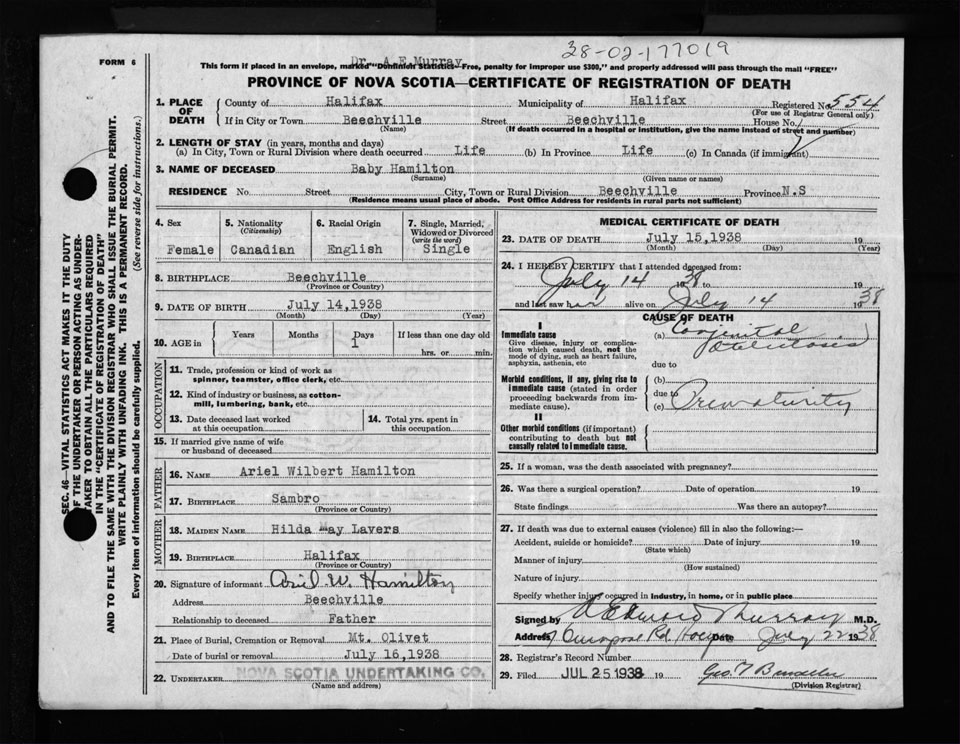 38-02-177019
FORM 6
Dr. A E Murray
This form if placed in an envelope, marked "Dominion Statistics—Free, penalty for improper use $300," and properly addressed will pass through the mail "FREE"
PROVINCE OF NOVA SCOTIA—CERTIFICATE OF REGISTRATION OF DEATH
1. PLACE OF DEATH
County of Halifax Municipality of Halifax Registered No. 554
(For use of Registrar General only)
If in City or Town Beechville Street Beechville House No.
(Name) (If death occurred in a hospital or institution, give the name instead of street and number)
2. LENGTH OF STAY (in years, months and days)
(a) In City, Town or Rural Division where death occurred Life (b) In Province Life (c) In Canada (if immigrant)
3. NAME OF DECEASED Baby Hamilton
(Surname) (Given name or names)
RESIDENCE No. Street City, Town or Rural Division Beechville Province N.S
(Residence means usual place of abode. Post Office Address for residents in rural parts not sufficient)
4. Sex
Female
5. Nationality
(Citizenship)
Canadian
6. Racial Origin
English
7. Single, Married, Widowed or Divorced
(write the word)
Single
8. BIRTHPLACE Beechville
(Province or Country)
9. DATE OF BIRTH July 14,1938
(Month) (Day) (Year)
10. AGE in
Years Months Days If less than one day old
1
hrs. or min.
OCCUPATION
11. Trade, profession or kind of work as
spinner, teamster, office clerk, etc.
12. Kind of industry or business, as cotton-
mill, lumbering, bank, etc.
13. Date deceased last worked
at this occupation
14. Total yrs. spent in
this occupation
15. If married give name of wife
or husband of deceased
FATHER
16. NAME Ariel Wilbert Hamilton
17. BIRTHPLACE Sambro
(Province or Country)
MOTHER
18. MAIDEN NAME Hilda May Lavers
19. BIRTHPLACE Halifax
(Province or Country)
20. Signature of informant W. Hamilton
Address Beechville
Relationship to deceased Father
21. Place of Burial, Cremation or Removal Mt. Olivet
Date of burial or removal July 16,1938
22. UNDERTAKER NOVA SCOTIA UNDERTAKING CO.
(Name and address)
MEDICAL CERTIFICATE OF DEATH
23. DATE OF DEATH July 15,1938 19
(Month) (Day) (Year)
24. I HEREBY CERTIFY that I attended deceased from:
July 14 1938 to 19
and last saw her alive on July 14 1938
CAUSE OF DEATH
I
Immediate cause
Give disease, injury or complica-
tion which caused death, not the
mode of dying, such as heart failure,
asphyxia, asthenia, etc
(a) Congenital
Atelectasis
due to
Morbid conditions, if any, giving rise to
immediate cause (stated in order
proceeding backwards from im-
mediate cause).
(b)
due to
(c) Prematurity
II
Other morbid conditions (if important)
contributing to death but not
causally related to immediate cause.
25. If a woman, was the death associated with pregnancy?
26. Was there a surgical operation? Date of operation 19
State findings Was there an autopsy?
27. If death was due to external causes (violence) fill in also the following:—
Accident, suicide or homicide? Date of injury 19
(State which)
Manner of injury
(How sustained)
Nature of injury
Specify whether injury occurred in industry, in home, or in public place
Signed by A Edward Murray M.D.
Address Rd. Date July 22 1938
28. Registrar's Record Number
29. Filed JUL 25 1938 19 Geo.
(Division Registrar)
SEC. 46—VITAL STATISTICS ACT MAKES IT THE DUTY
OF THE UNDERTAKER OR PERSON ACTING AS UNDER-
TAKER TO OBTAIN ALL THE PARTICULARS REQUIRED
IN THE "CERTIFICATE OF REGISTRATION OF DEATH"
AND TO FILE THE SAME WITH THE DIVISION REGISTRAR WHO SHALL ISSUE THE BURIAL PERMIT.
WRITE PLAINLY WITH UNFADING INK. THIS IS A PERMANENT RECORD.
Every item of information should be carefully supplied. (See reverse side for instructions.)